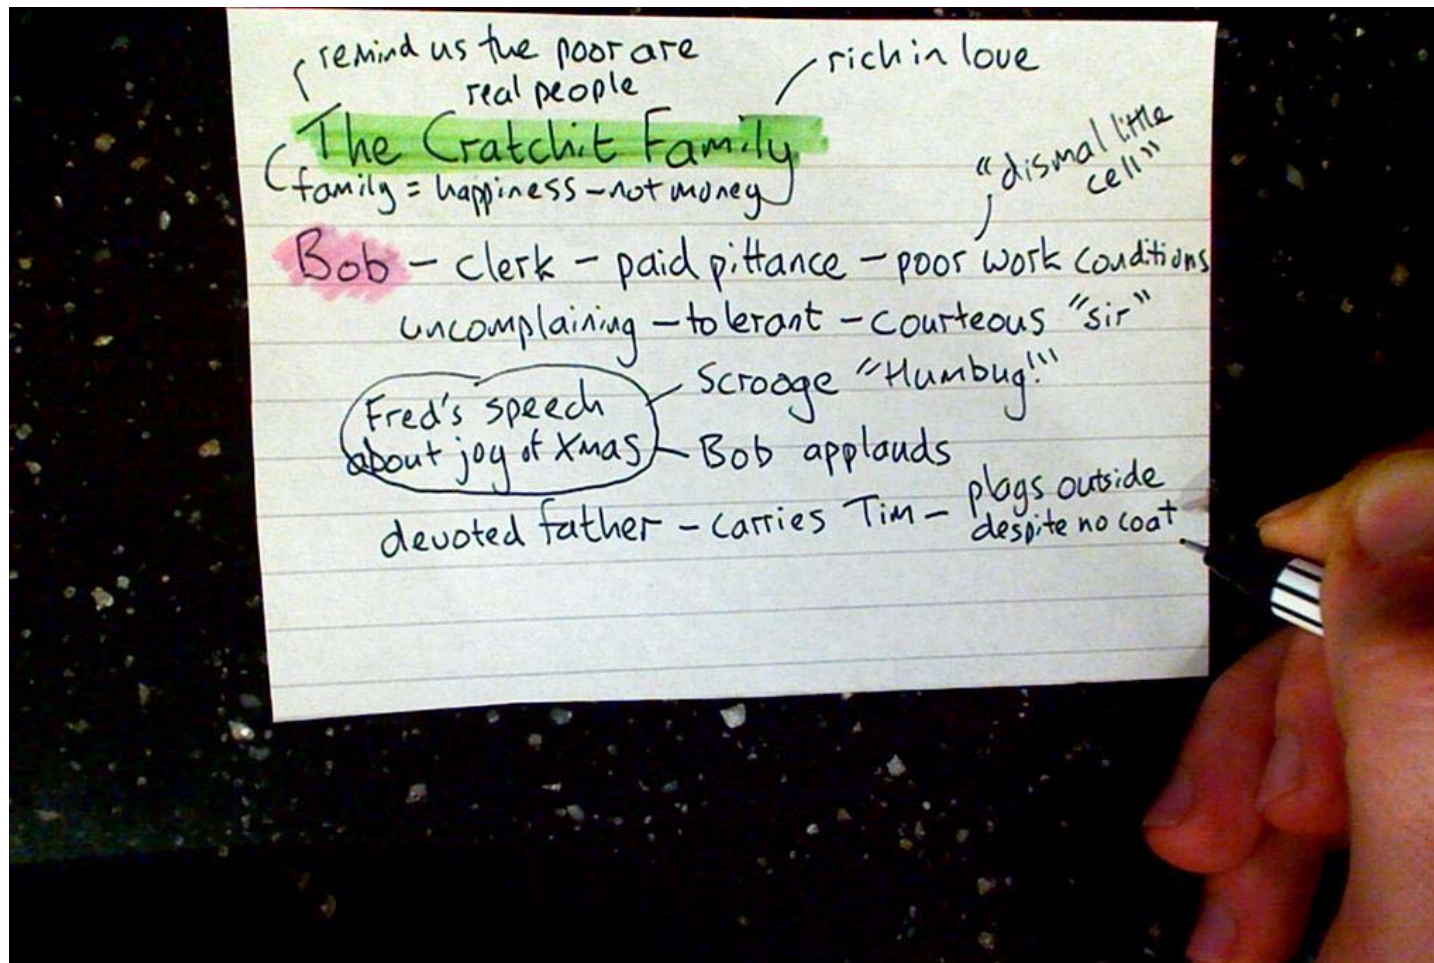 remind us the poor are
real people
rich in love
The Cratchit Family
family = happiness - not money
"dismal little
cell"
Bob - clerk - paid pittance - poor work conditions
uncomplaining - tolerant - courteous "sir"
Scrooge "Humbug!"
Fred's speech
about joy of Xmas
Bob applauds
devoted father - carries Tim - plays outside
despite no coat